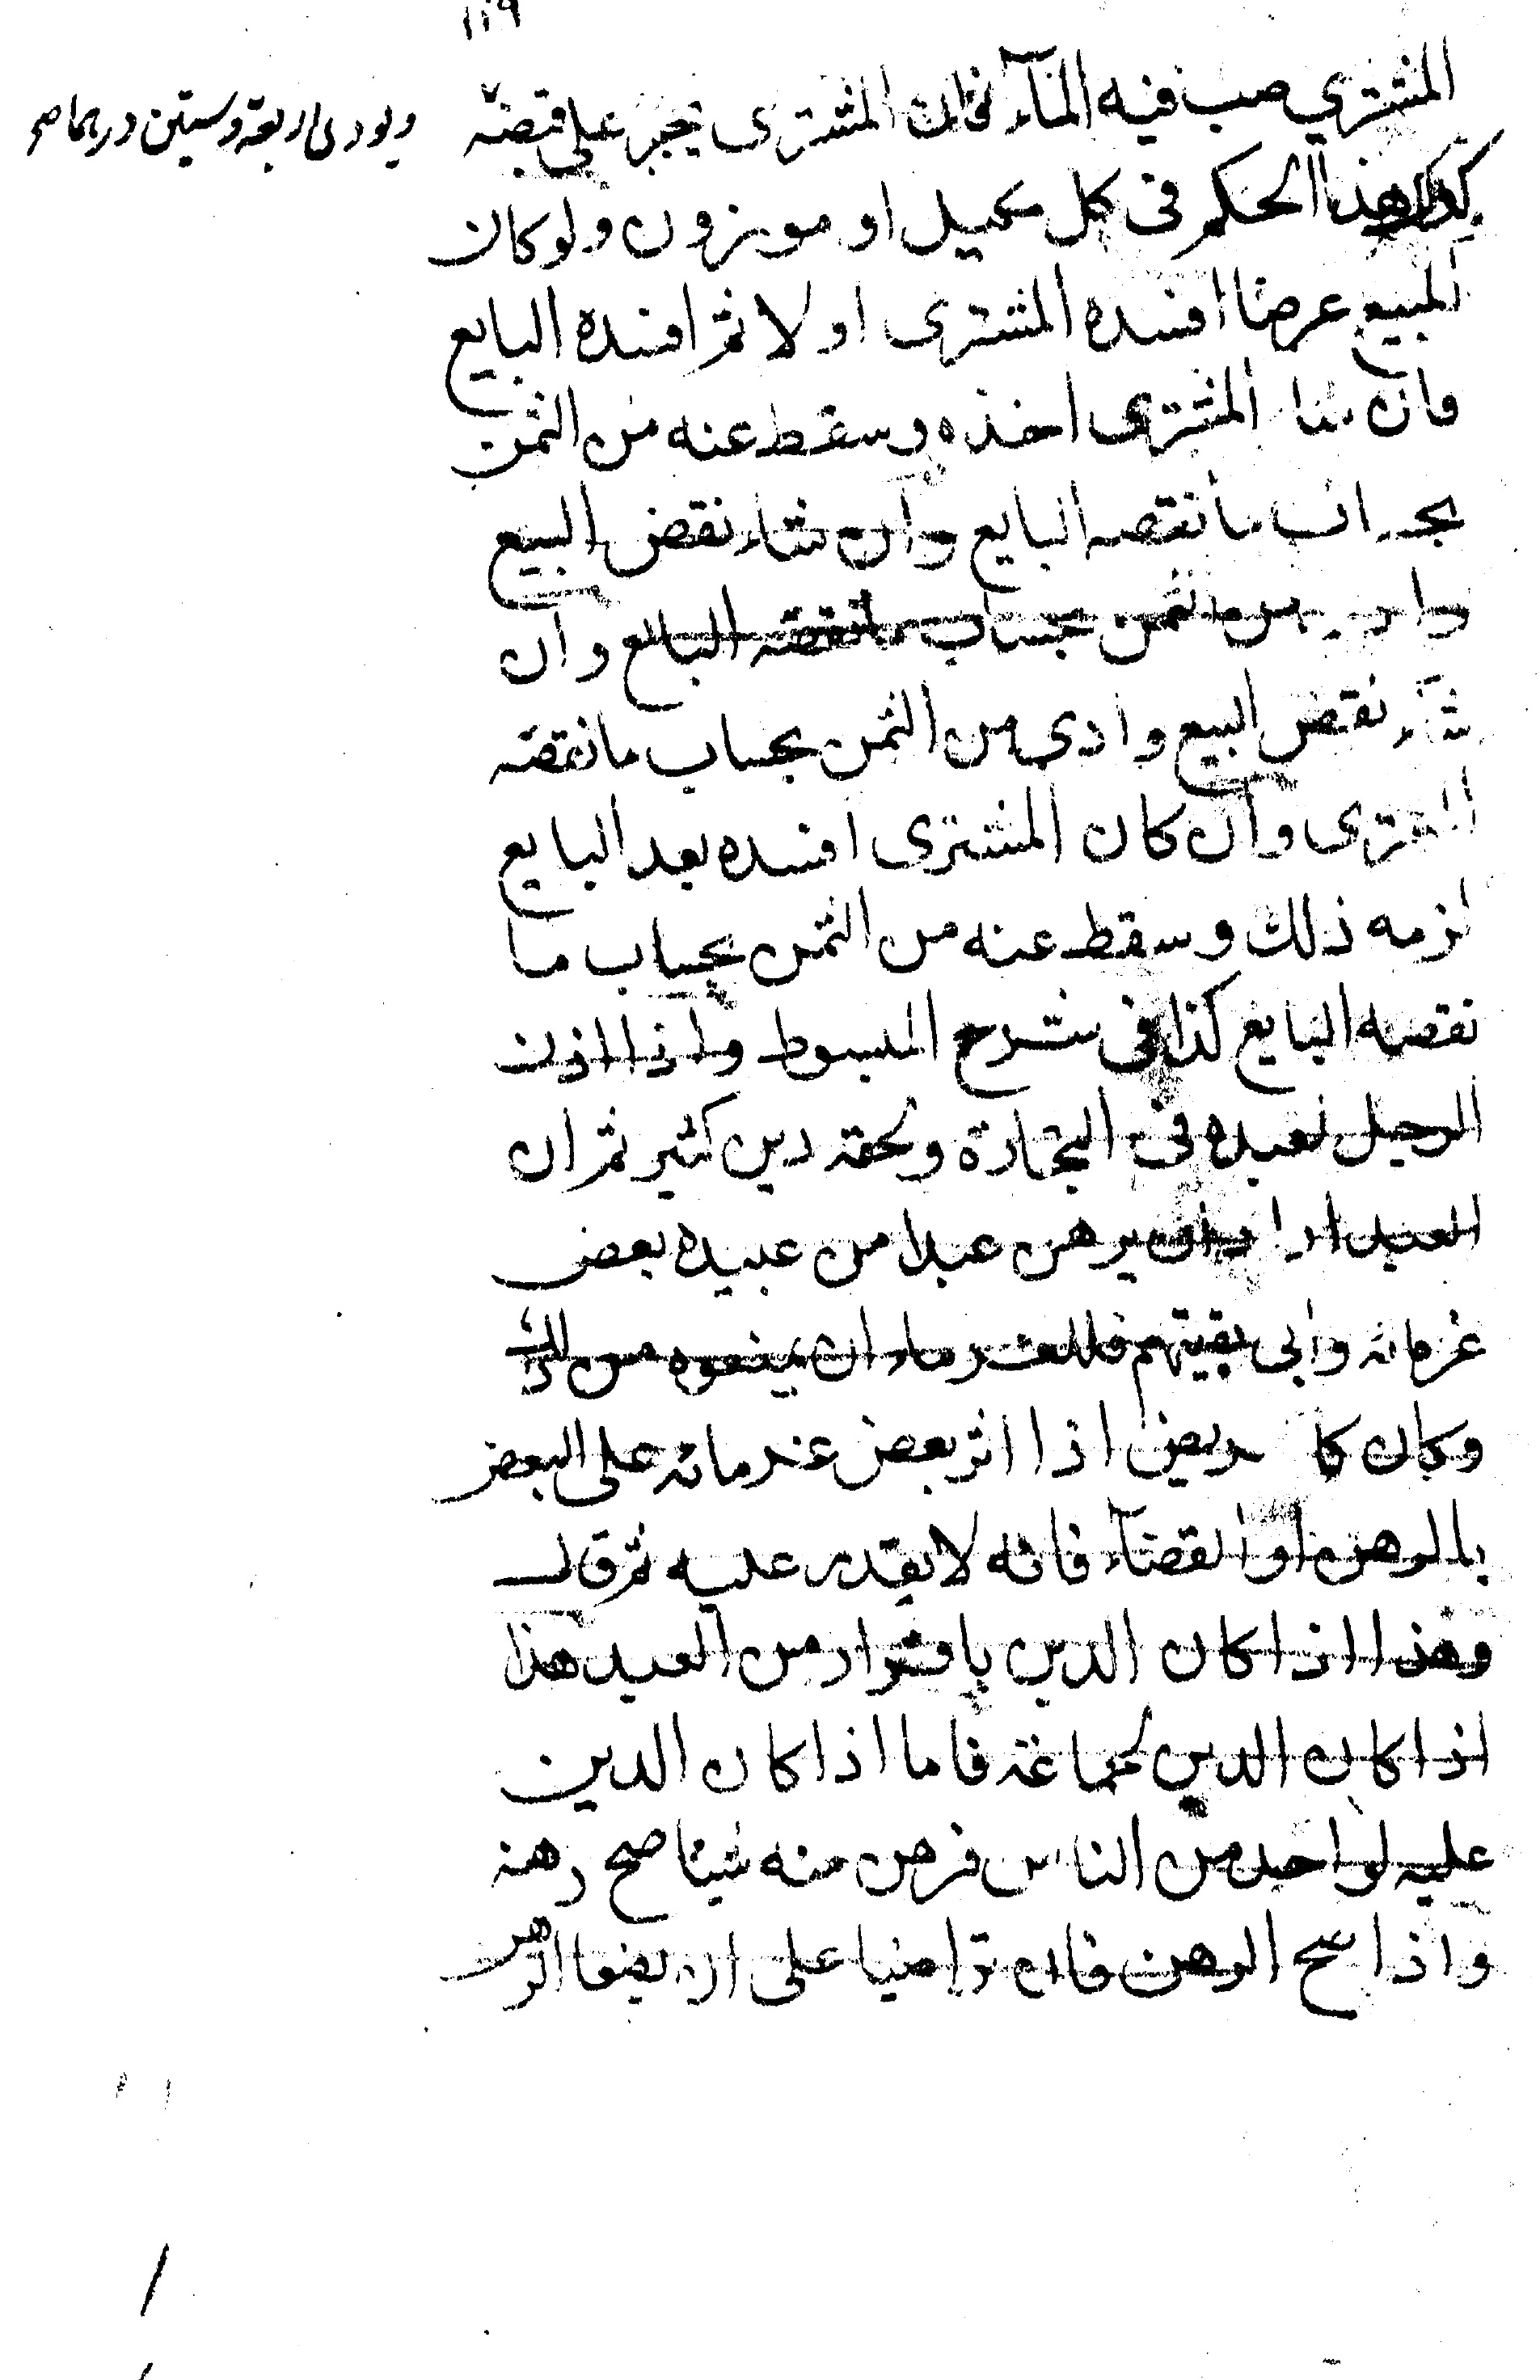 ١١٩
المشترى صب فيه المآء فان المشترى يجبر على قبضه
ويودى اربعة وستين درهما صح
كذا هذا الحكم فى كل مكيل او موزون ولو كان
المبيع عرضا افسده المشترى اولا ثم افسده البايع
فان شا المشترى اخذه وسقط عنه من الثمن
بحساب ما نقصه البايع وان شاء نقض البيع
وادى من الثمن بحساب ما نقصه البائع وان
شآء نقض البيع وادى من الثمن بحساب ما نقصه
المشترى وان كان المشترى افسده بعد البايع
لزمه ذلك وسقط عنه من الثمن بحساب ما
نقصه البايع كذا فى شرح المبسوط واذا اذن
الرجل لعبده فى التجارة ولحقه دين كثير ثم ان
العبد اراد ان يرهن عبدا من عبيده بعض
غرمائه وابى بقيتهم فللغرماء ان يمنعوه من ذلك
وكان كا مريض اذا اثر بعض غرمائه على البعض
بالرهن او القضآء فانه لا يقدر عليه ثم قال
وهذا اذا كان الدين باقرار من العبد هذا
اذا كان الدين لجماعة فاما اذا كان الدين
عليه لواحد من الناس فرهن منه شيئا صح رهنه
واذا صح الرهن فان تراضيا على ان يضعا الرهن